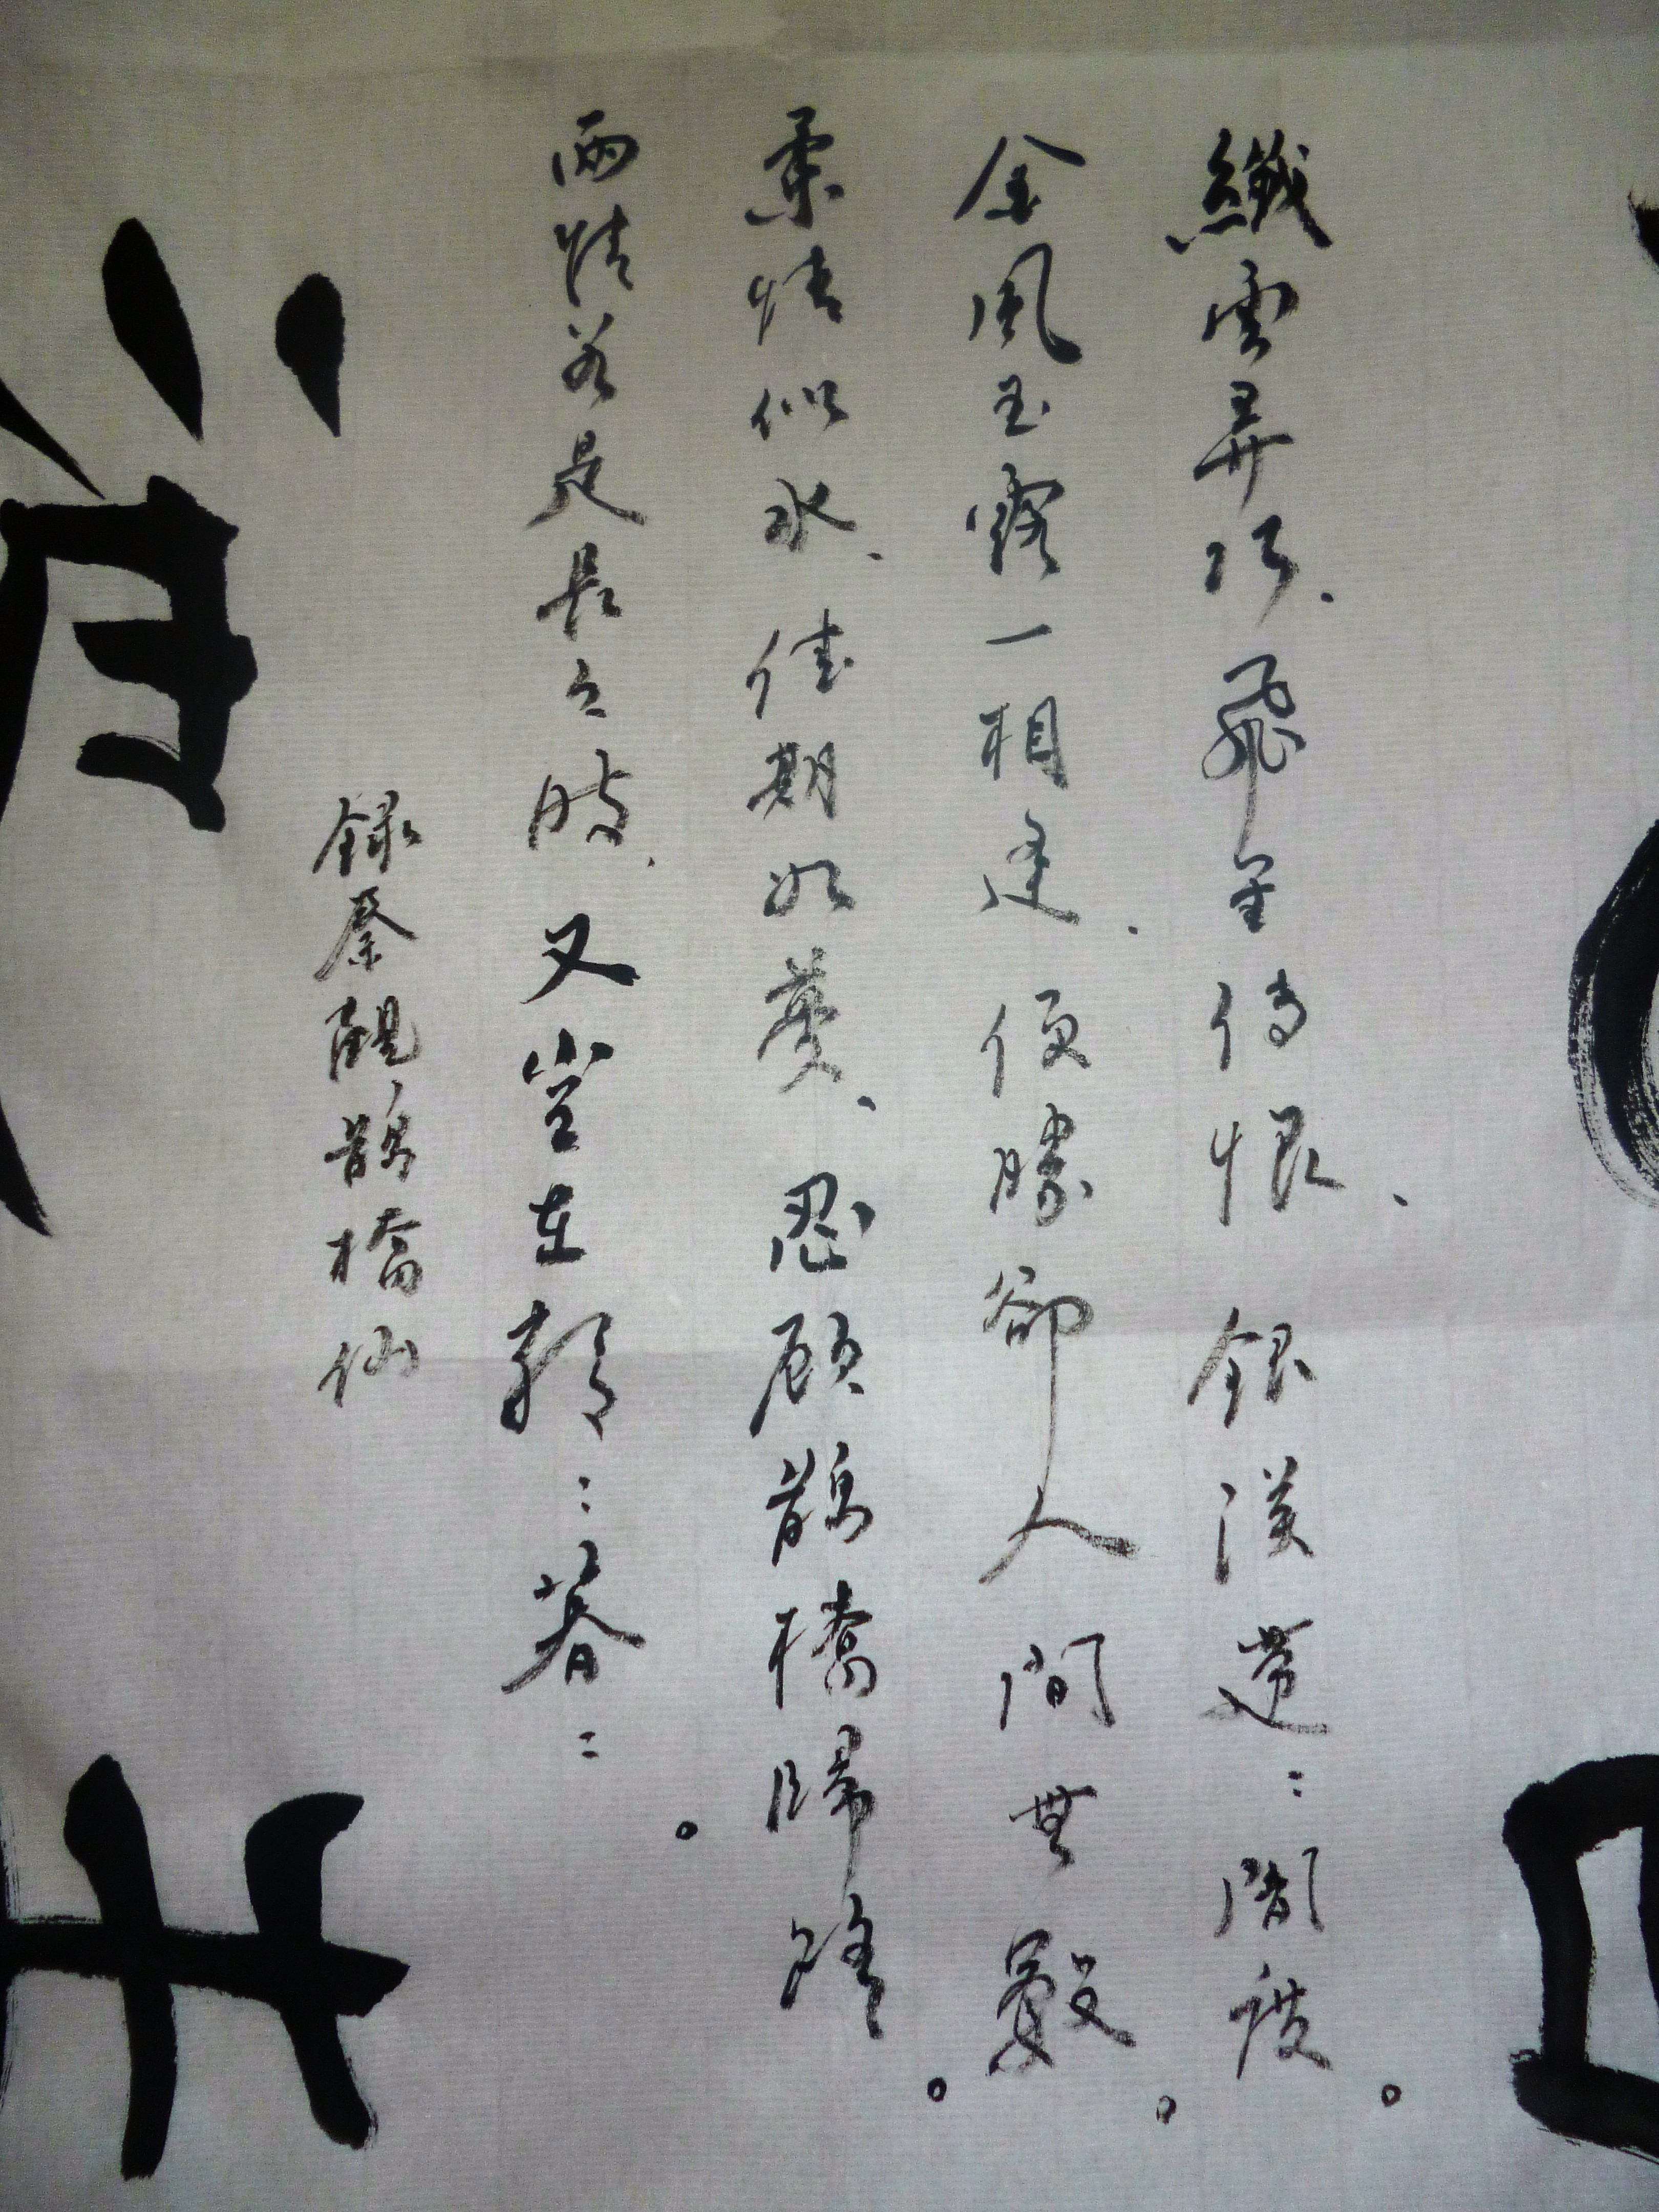 纖雲弄巧、飛星傳恨、銀漢迢：闇渡。
金風玉露一相逢、便勝卻人間無數。
柔情似水、佳期如夢、忍顧鵲橋歸路。
兩情若是長久時、又豈在朝：暮：。
錄秦觀鵲橋仙